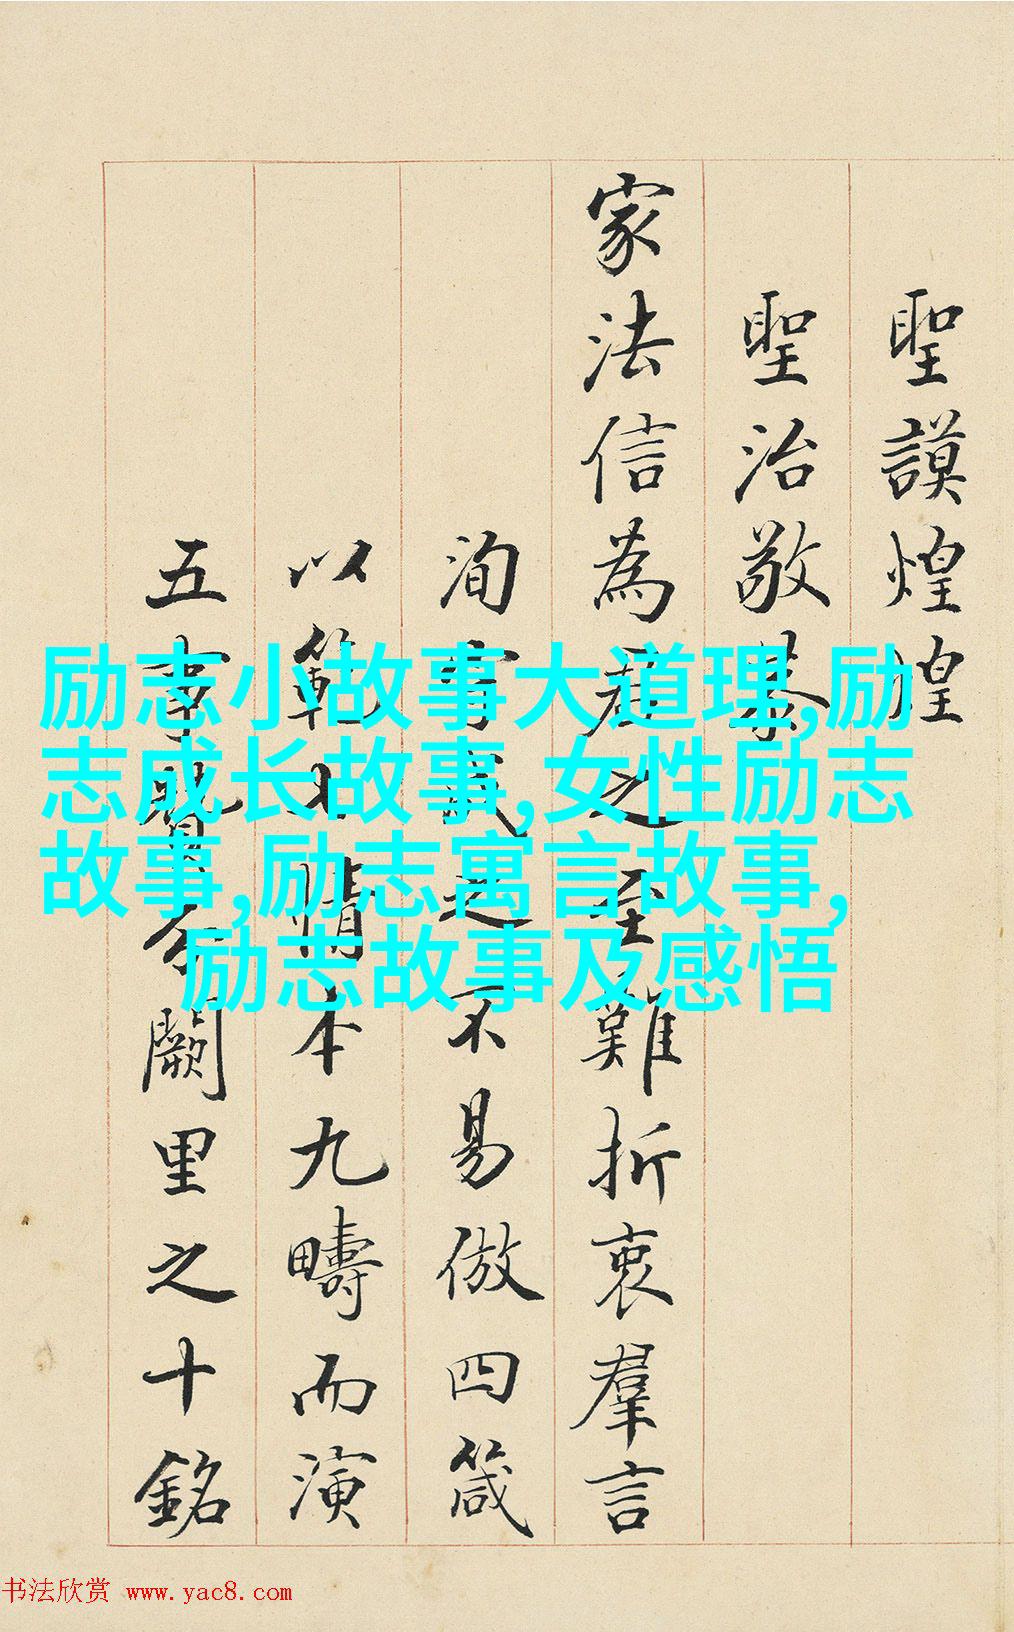 聖謨煌煌
聖治敬慕
家法信為君之至難折衷羣言
洵官義之不易倣四箴
以範情本九疇而演
五事贊今闕里之十銘
励志小故事大道理,励
志成长故事,女性励志
故事,励志寓言故事,
励志故事及感悟
书法欣赏 www.yac8.com